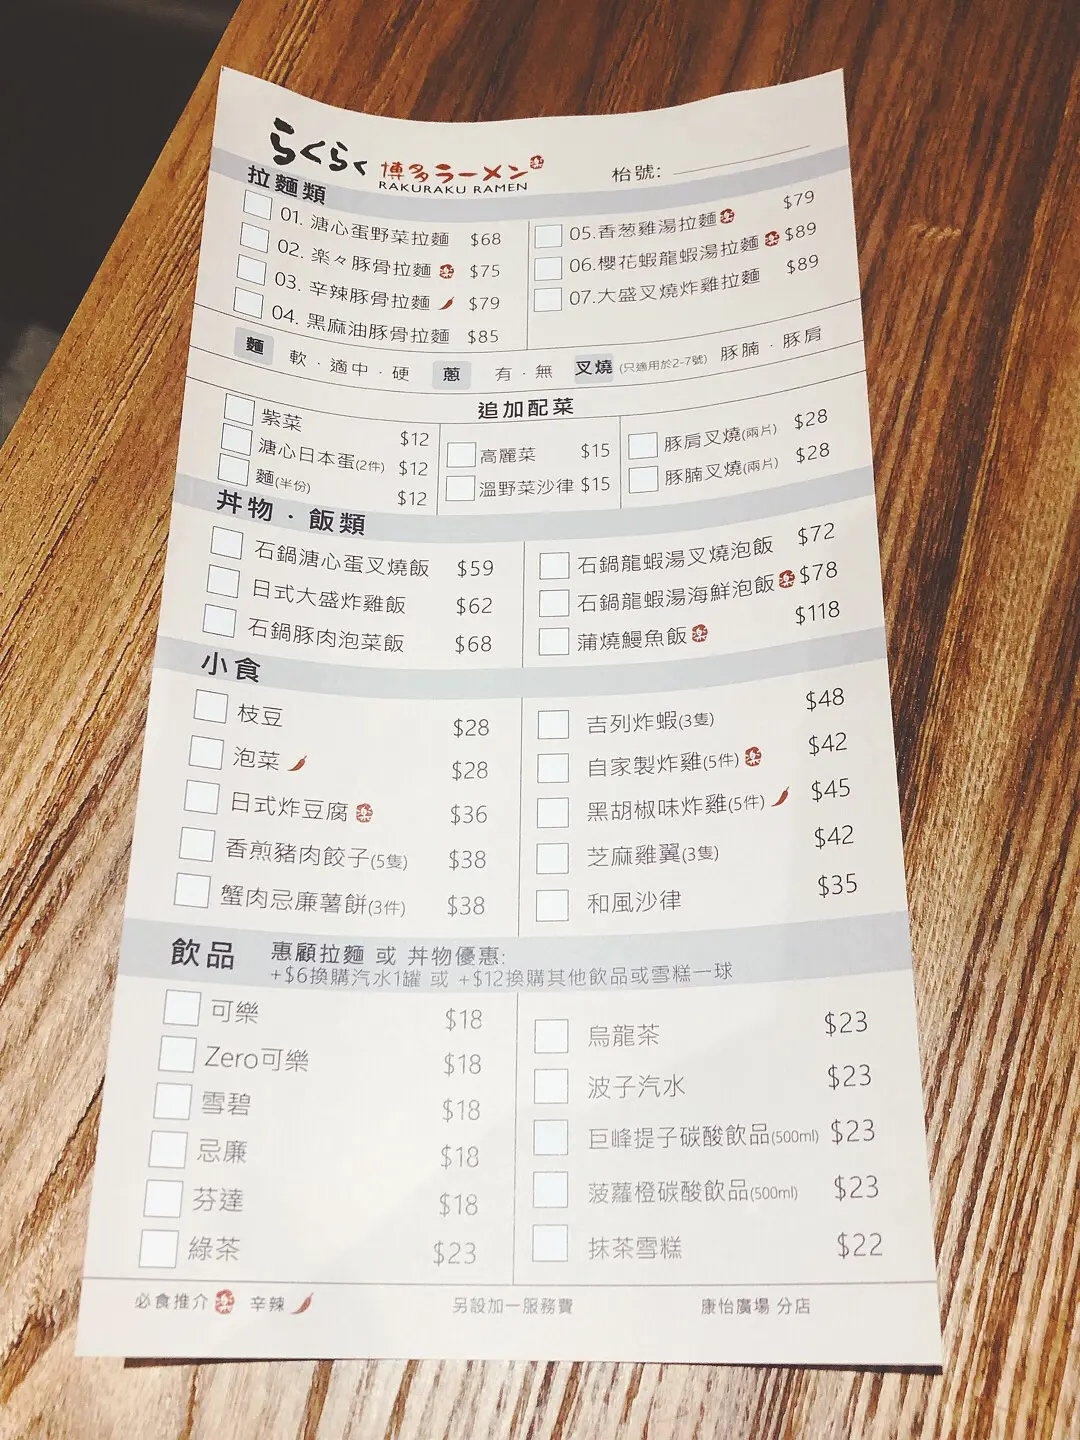 らくらく 博多ラーメン 楽
RAKURAKU RAMEN
枱號:
拉麵類
01. 溏心蛋野菜拉麵 $68
02. 楽々豚骨拉麵 楽 $75
03. 辛辣豚骨拉麵 $79
04. 黑麻油豚骨拉麵 $85
05.香葱雞湯拉麵 楽 $79
06.櫻花蝦龍蝦湯拉麵 楽 $89
07.大盛叉燒炸雞拉麵 $89
麵 軟 · 適中 · 硬 蔥 有 · 無 叉燒 (只適用於2-7號) 豚腩 · 豚肩
追加配菜
紫菜 $12
溏心日本蛋(2件) $12
麵(半份) $12
高麗菜 $15
溫野菜沙律 $15
豚肩叉燒(兩片) $28
豚腩叉燒(兩片) $28
丼物 · 飯類
石鍋溏心蛋叉燒飯 $59
日式大盛炸雞飯 $62
石鍋豚肉泡菜飯 $68
石鍋龍蝦湯叉燒泡飯 $72
石鍋龍蝦湯海鮮泡飯 楽 $78
蒲燒鰻魚飯 楽 $118
小食
枝豆 $28
泡菜 $28
日式炸豆腐 楽 $36
香煎豬肉餃子(5隻) $38
蟹肉忌廉薯餅(3件) $38
吉列炸蝦(3隻) $48
自家製炸雞(5件) 楽 $42
黑胡椒味炸雞(5件) $45
芝麻雞翼(3隻) $42
和風沙律 $35
飲品 惠顧拉麵 或 丼物優惠:
+$6換購汽水1罐 或 +$12換購其他飲品或雪糕一球
可樂 $18
Zero可樂 $18
雪碧 $18
忌廉 $18
芬達 $18
綠茶 $23
烏龍茶 $23
波子汽水 $23
巨峰提子碳酸飲品(500ml) $23
菠蘿橙碳酸飲品(500ml) $23
抹茶雪糕 $22
必食推介 楽 辛辣 另設加一服務費 康怡廣場 分店